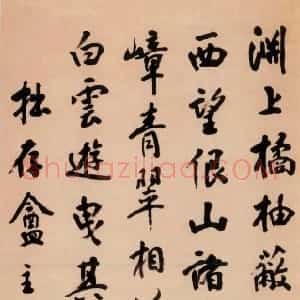 淵上橘柚蔽
西望佷山諸
嶂青翠相
白雲遊曳其
拙存盦主
shufaziliao.com